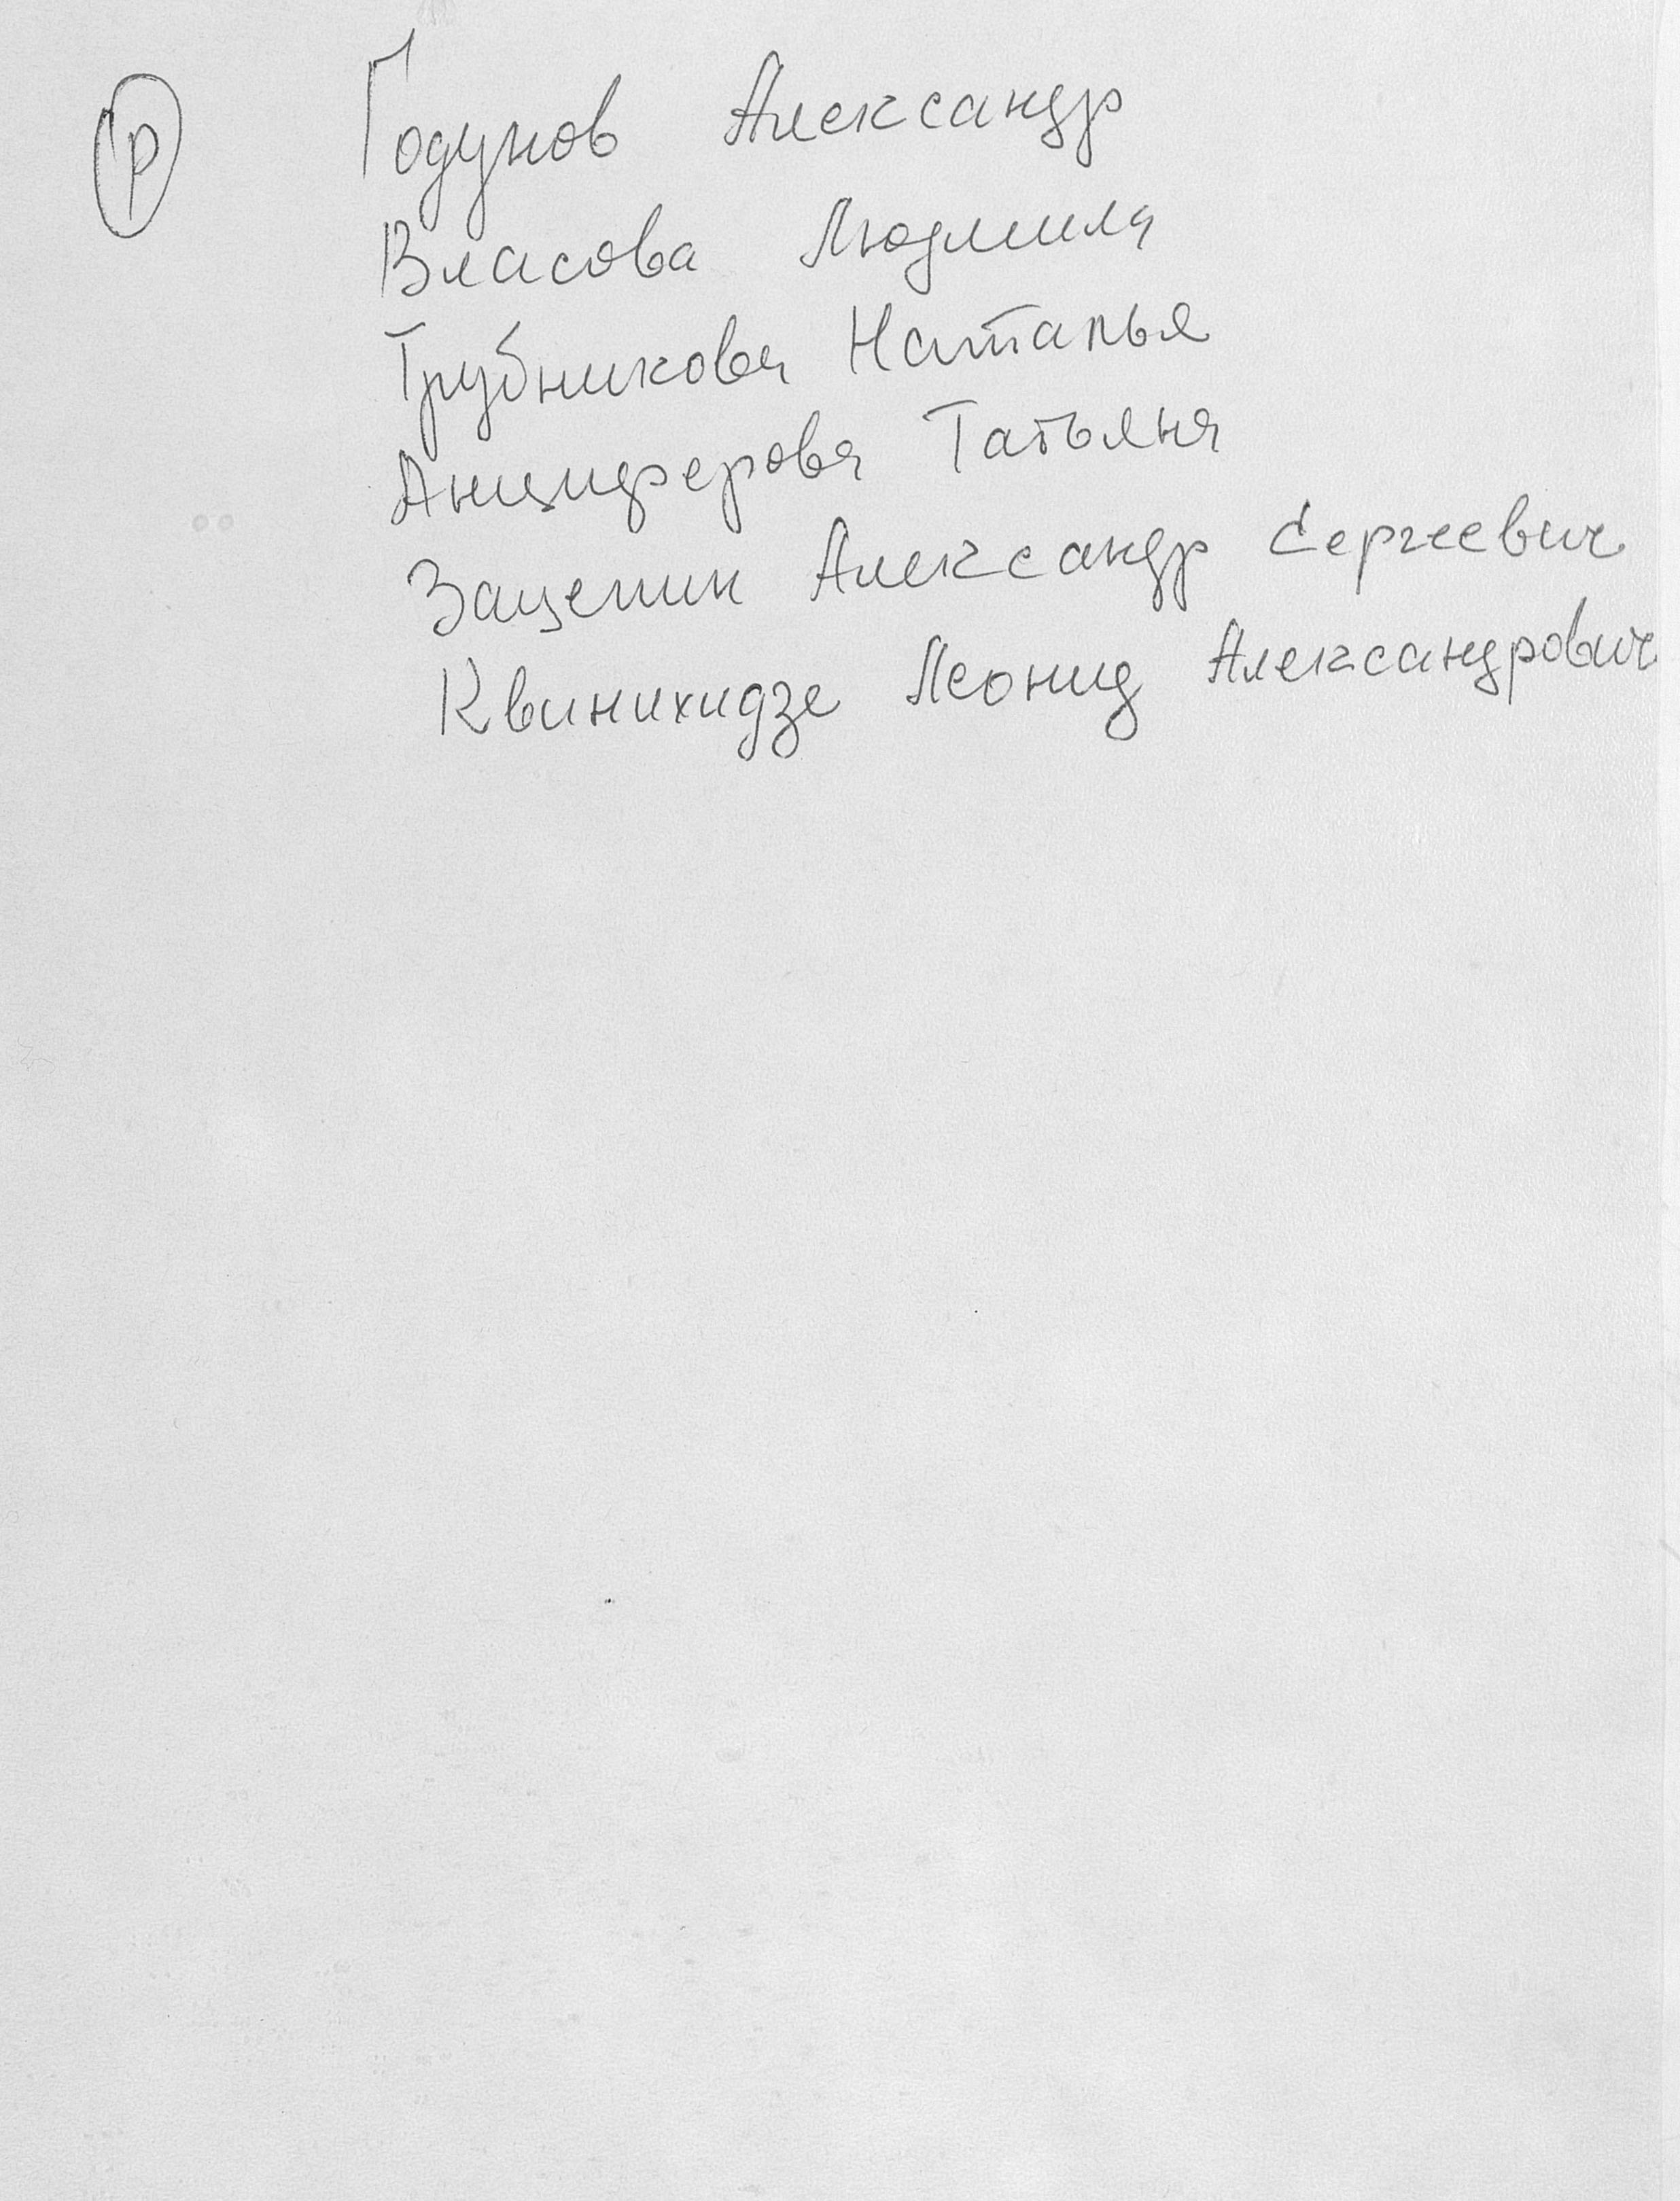 Р Годунов Александр
Власова Людмила
Трубникова Наталья
Анциферова Татьяна
Зацепин Александр Сергеевич
Квинихидзе Леонид Александрович